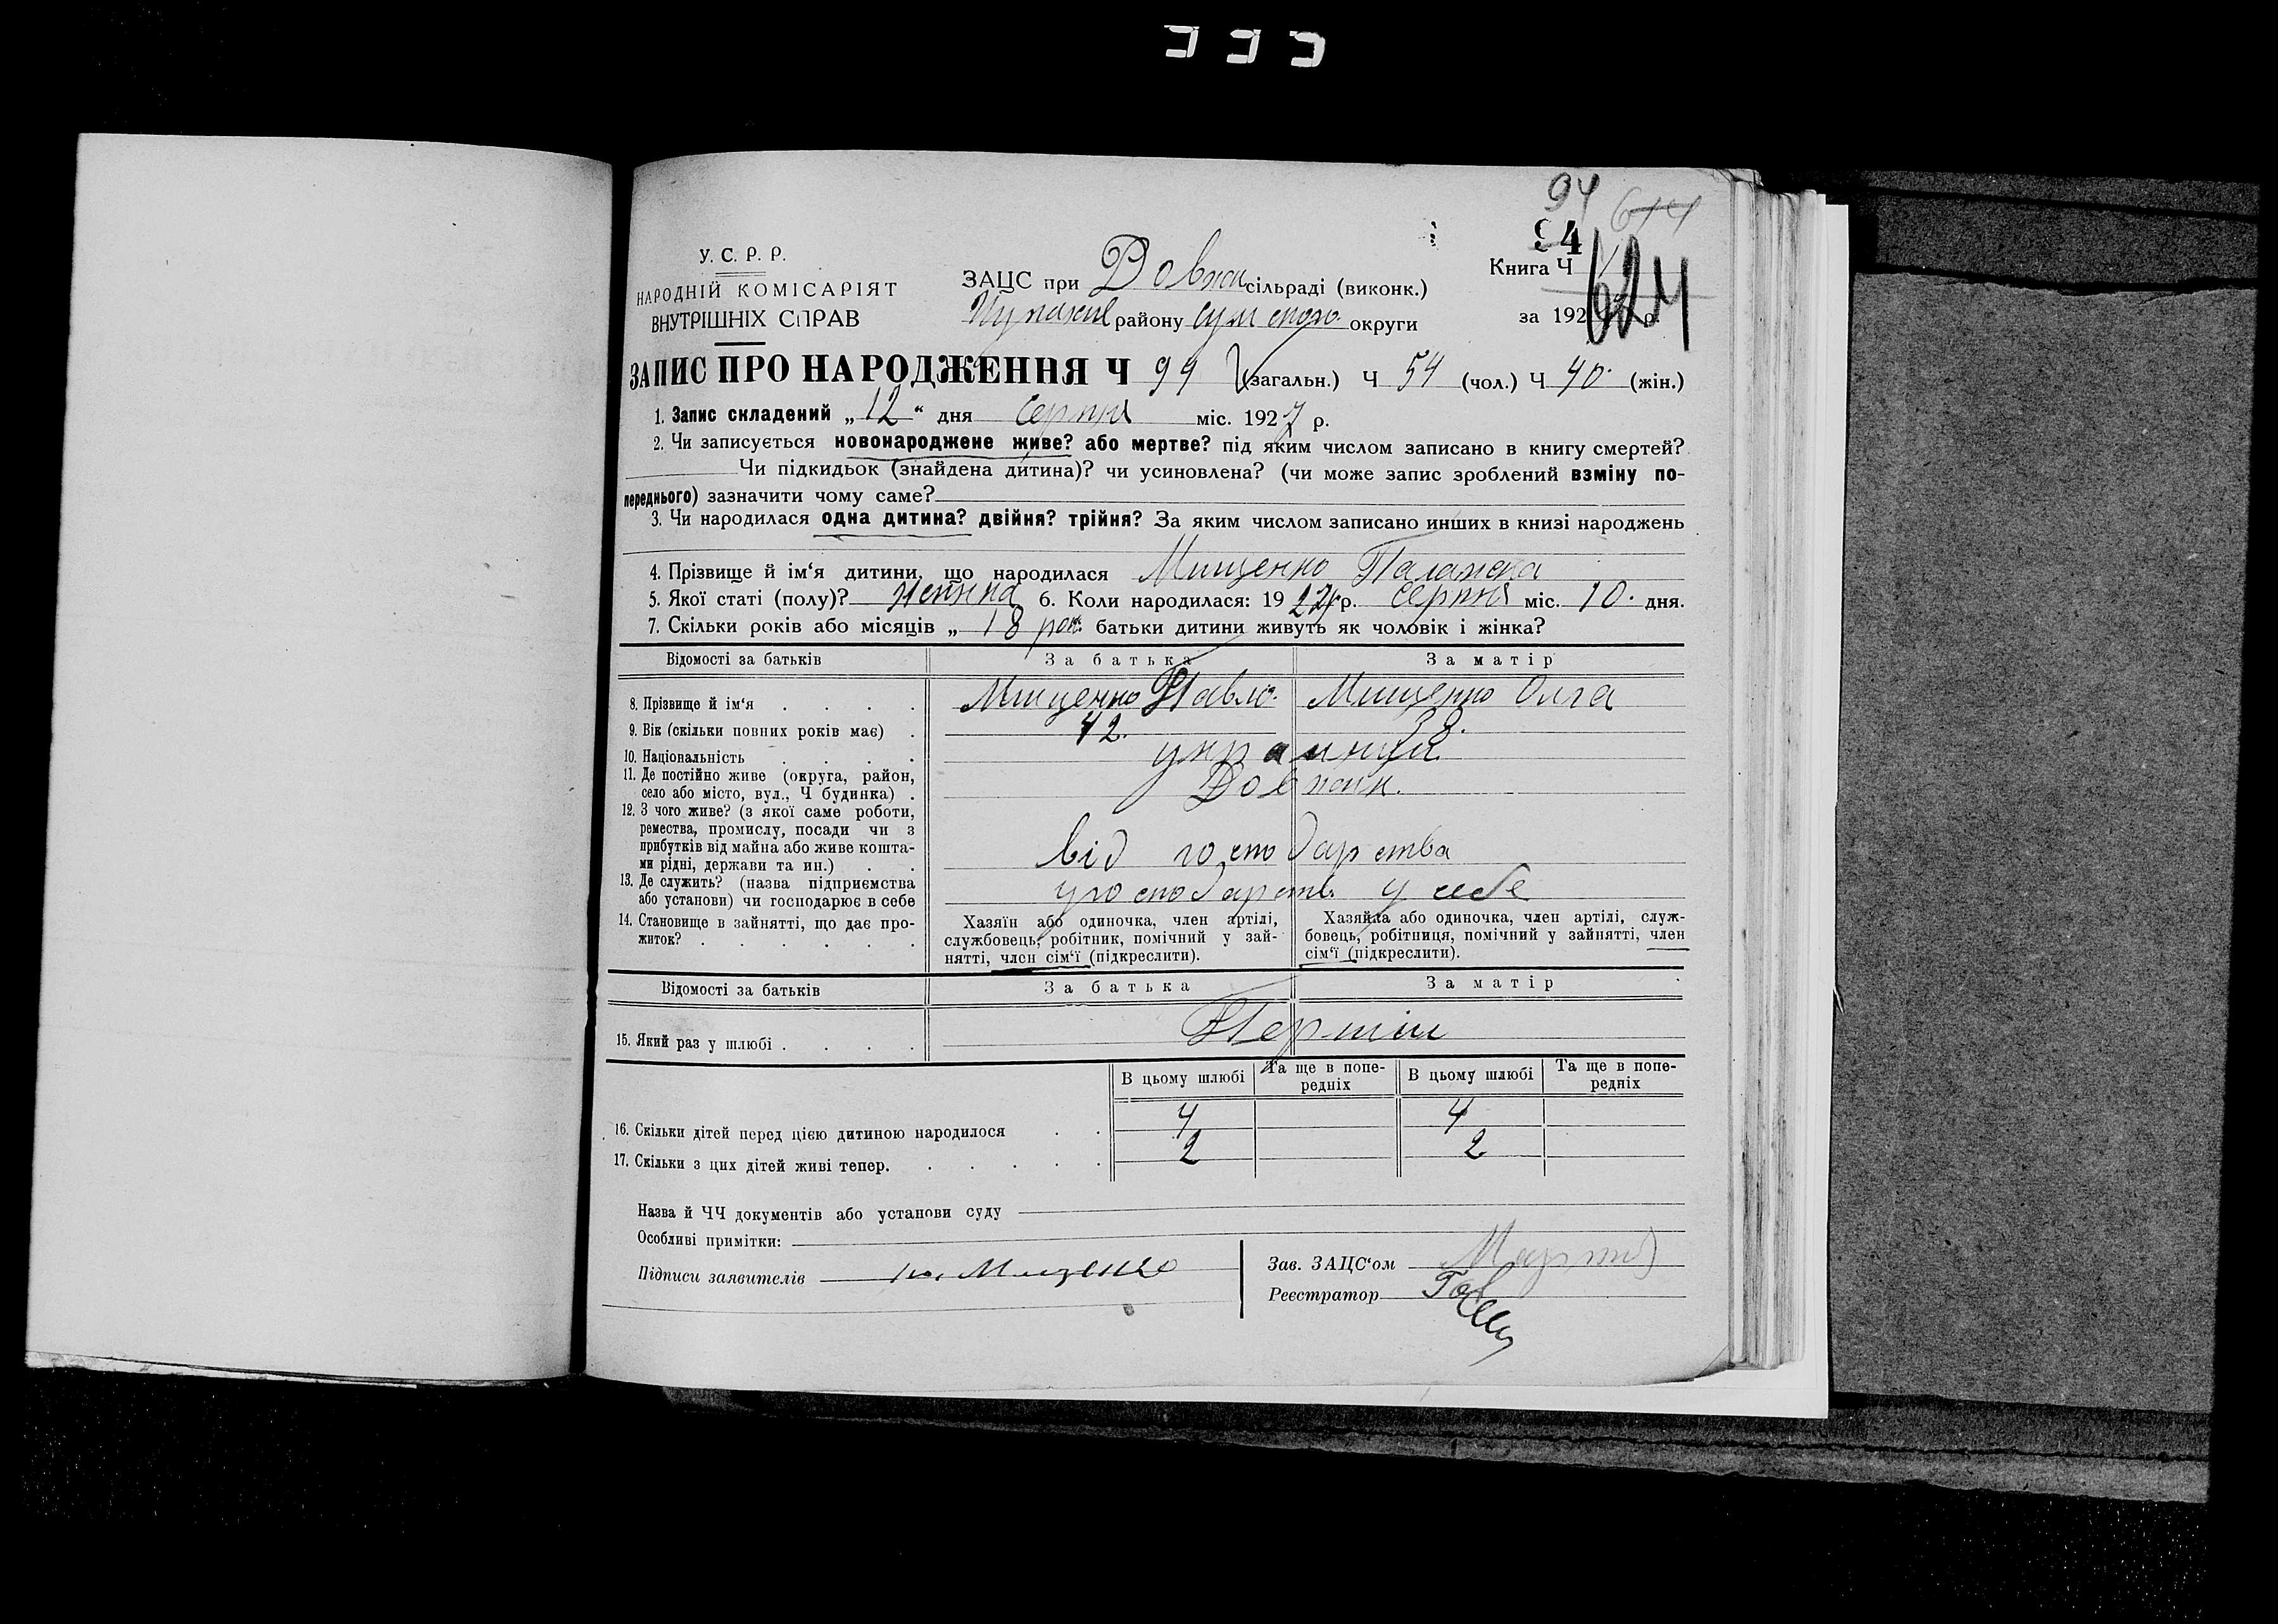 94 614
94
У. С. Р. Р.
НАРОДНІЙ КОМІСАРІЯТ
ВНУТРІШНІХ СПРАВ
ЗАЦС при Довжик сільраді (виконк.)
району Сумского округи
Книга Ч
624
за 192 р.
ЗАПИС ПРО НАРОДЖЕННЯ Ч 99 (загальн.) Ч 54 (чол.) Ч 40. (жін.)
1. Запис складений „ 12 “ дня серпня міс. 1927 р.
2. Чи записується новонароджене живе? або мертве? під яким числом записано в книгу смертей?
Чи підкидьок (знайдена дитина)? чи усиновлена? (чи може запис зроблений взміну по-
переднього) зазначити чому саме?
3. Чи народилася одна дитина? двійня? трійня? За яким числом записано инших в книзі народжень
4. Прізвище й ім‘я дитини, що народилася Мищенко Палажка
5. Якої статі (полу)? женска 6. Коли народилася: 1927 р. серпня міс. 10. дня.
7. Скільки років або місяців „ 18 рок. батьки дитини живуть як чоловік і жінка?
Відомості за батьків За батька За матір
8. Прізвище й ім‘я Мищенко Павло. Мищенко Олга
9. Вік (скільки повних років має) 42. 38.
10. Національність українці
11. Де постійно живе (округа, район,
село або місто, вул., Ч будинка) Довжик.
12. З чого живе? (з якої саме роботи,
ремества, промислу, посади чи з
прибутків від майна або живе кошта-
ми рідні, держави та ин.) від господарства
13. Де служить? (назва підприємства
або установи) чи господарює в себе у господарств. у себе
14. Становище в зайнятті, що дає про-
житок?
Хазяїн або одиночка, член артілі,
службовець, робітник, помічний у зай-
нятті, член сім‘ї (підкреслити).
Хазяйла або одиночка, член артілі, служ-
бовець, робітниця, помічний у зайнятті, член
сім‘ї (підкреслити).
Відомості за батьків За батька За матір
15. Який раз у шлюбі Первий
В цьому шлюбі Та ще в попе-
редніх В цьому шлюбі Та ще в попе-
редніх
16. Скільки дітей перед цією дитиною народилося 4 4
17. Скільки з цих дітей живі тепер. 2 2
Назва й ЧЧ документів або установи суду
Особливі примітки:
Підписи заявителів Мищенко
Зав. ЗАЦС‘ом
Реєстратор